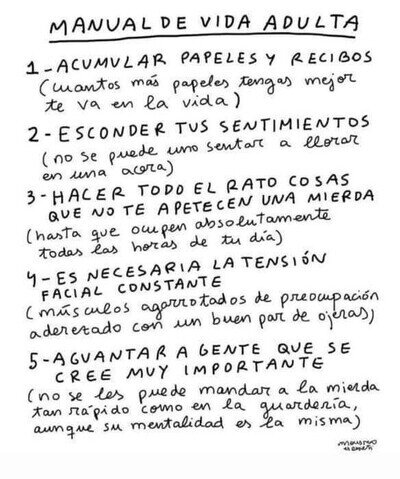 MANUAL DE VIDA ADULTA
1-ACUMULAR PAPELES Y RECIBOS
(cuantos más papeles tengas mejor
te va en la vida)
2-ESCONDER TUS SENTIMIENTOS
(no se puede uno sentar a llorar
en una acera)
3-HACER TODO EL RATO COSAS
QUE NO TE APETECEN UNA MIERDA
(hasta que ocupen absolutamente
todas las horas de tu día)
4-ES NECESARIA LA TENSIÓN
FACIAL CONSTANTE
(músculos agarrotados de preocupación
aderezado con un buen par de ojeras)
5-AGUANTAR A GENTE QUE SE
CREE MUY IMPORTANTE
(no se les puede mandar a la mierda
tan rápido como en la guardería,
aunque su mentalidad es la misma)